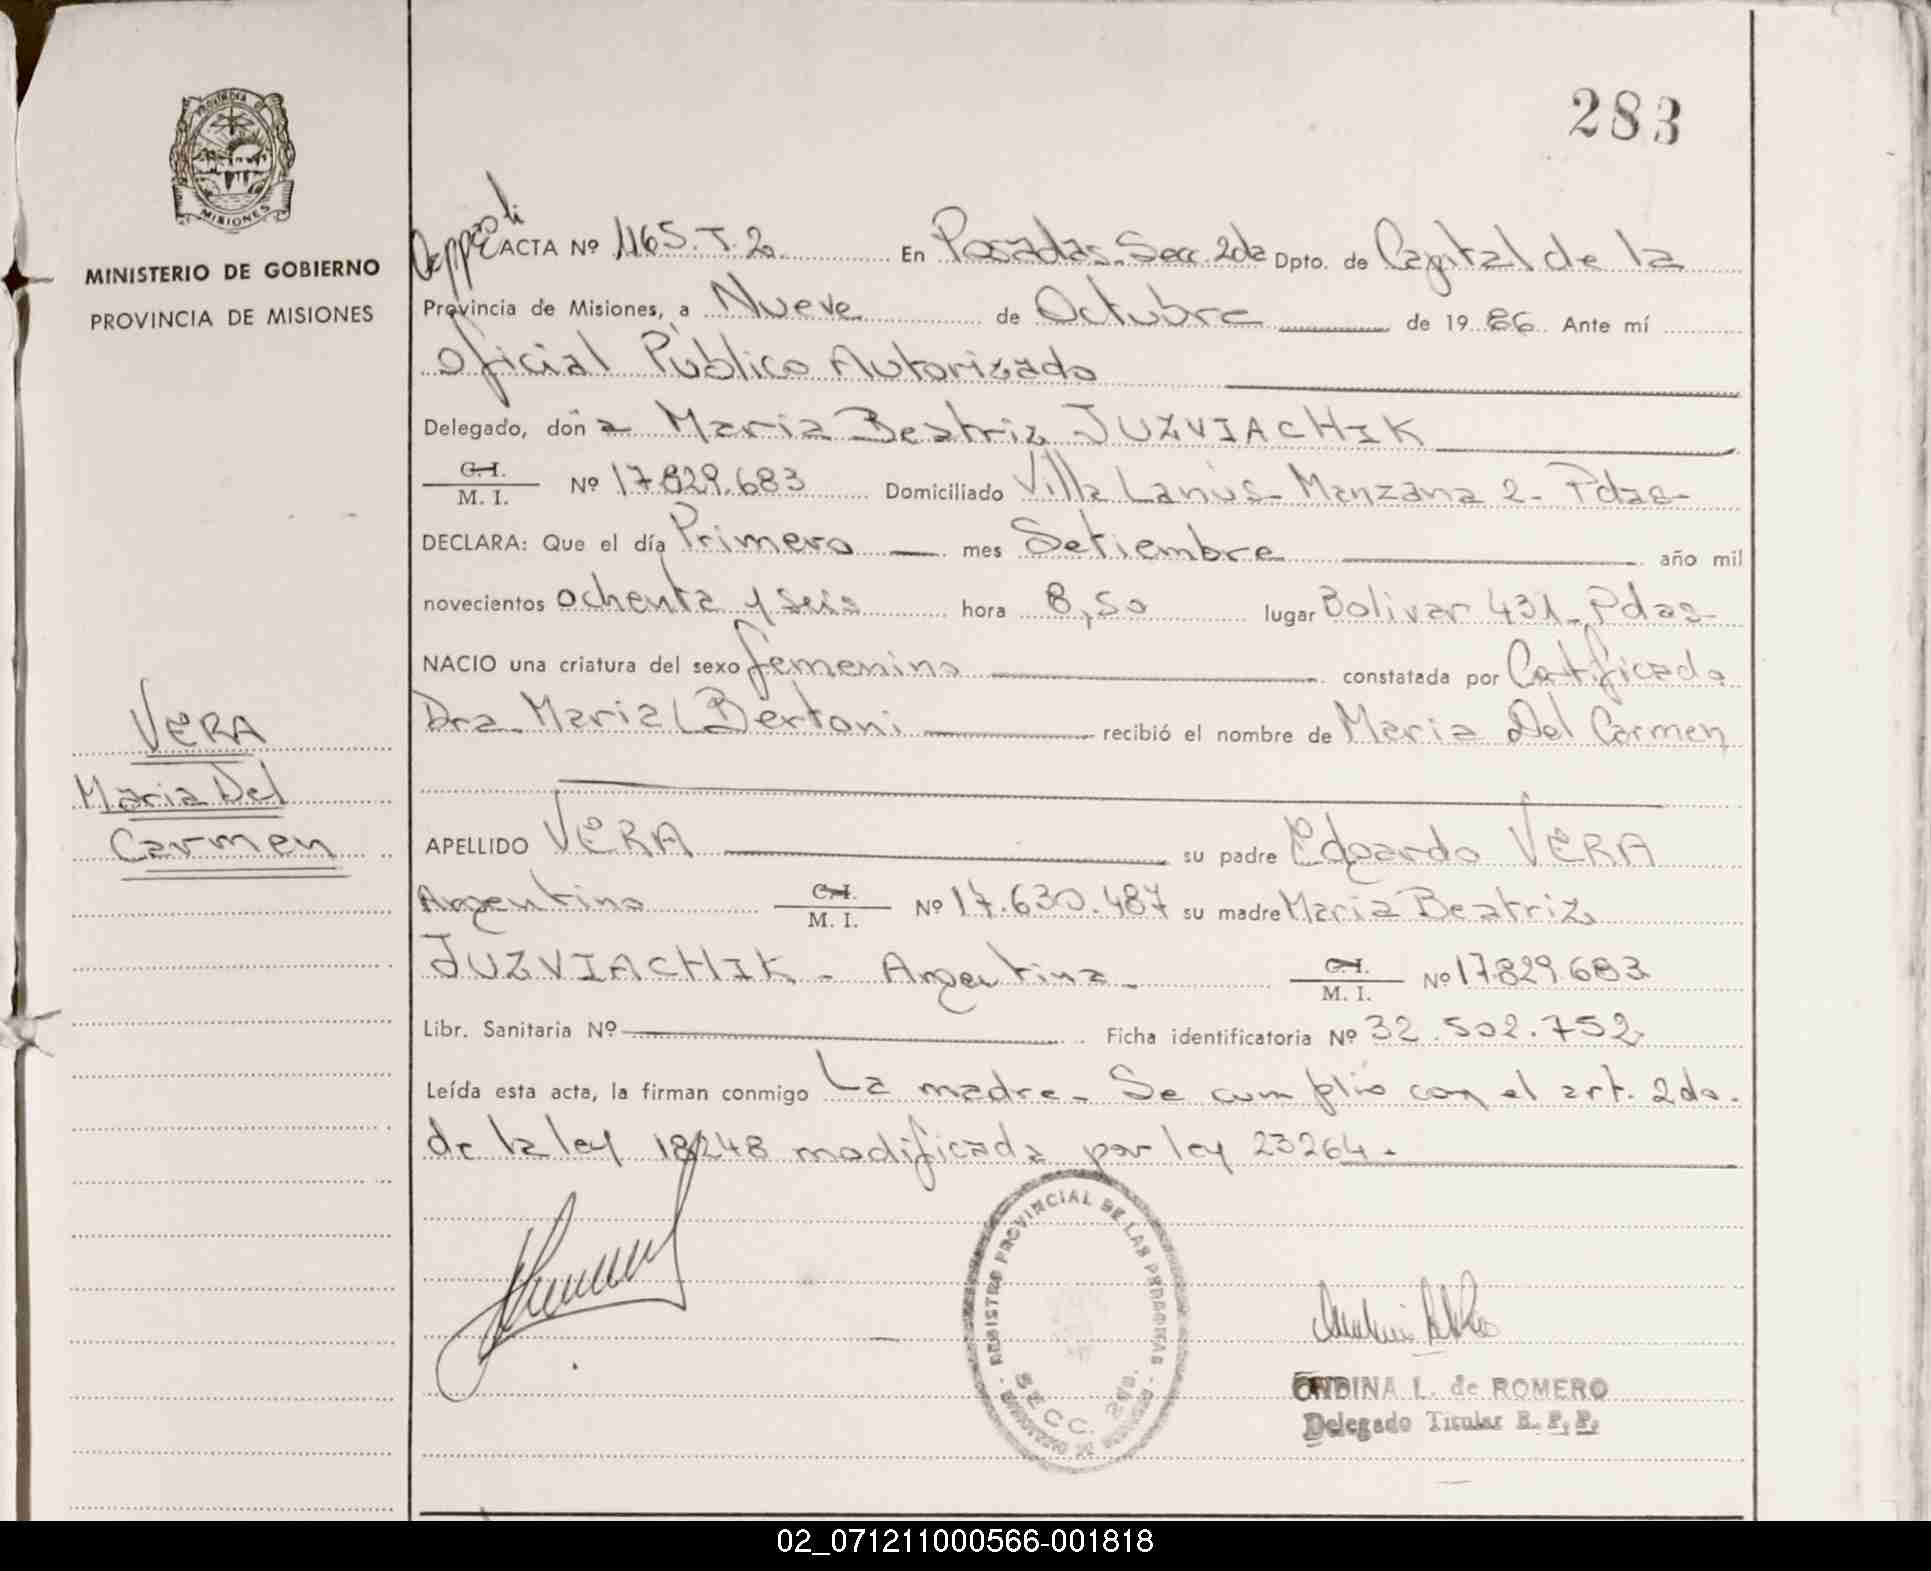 283
PROVINCIA DE
MISIONES
MINISTERIO DE GOBIERNO
PROVINCIA DE MISIONES
VERA
Maria Del
Carmen
ACTA Nº 1165.T.2o En Posadas. Secc. 2da Dpto. de Capital de la
Provincia de Misiones, a Nueve de Octubre de 1986. Ante mí
Oficial Público Autorizado
Delegado, doña Maria Beatriz JUZVIACHIK
C.I.
M. I. Nº 17.829.683 Domiciliado Villa Lanús- Manzana 2- Pdas-
DECLARA: Que el día Primero mes Setiembre año mil
novecientos ochenta y seis hora 8,50 lugar Bolivar 431- Pdas-
NACIO una criatura del sexo femenino constatada por Certificado
Dra. Maria Bertoni recibió el nombre de Maria Del Carmen
APELLIDO VERA su padre Edgardo VERA
Argentino C.I.
M. I. Nº 17.630.487 su madre Maria Beatriz
JUZVIACHIK - Argentina - C.I.
M. I. Nº 17829.683
Libr. Sanitaria Nº Ficha identificatoria Nº 32.502.752
Leída esta acta, la firman conmigo La madre- Se cumplió con el art. 2do.
de la ley 18248 modificada por ley 23264.
REGISTRO PROVINCIAL DE LAS PERSONAS
SECC. 2da.
ONDINA L. de ROMERO
Delegado Titular R. P. P.
02_071211000566-001818